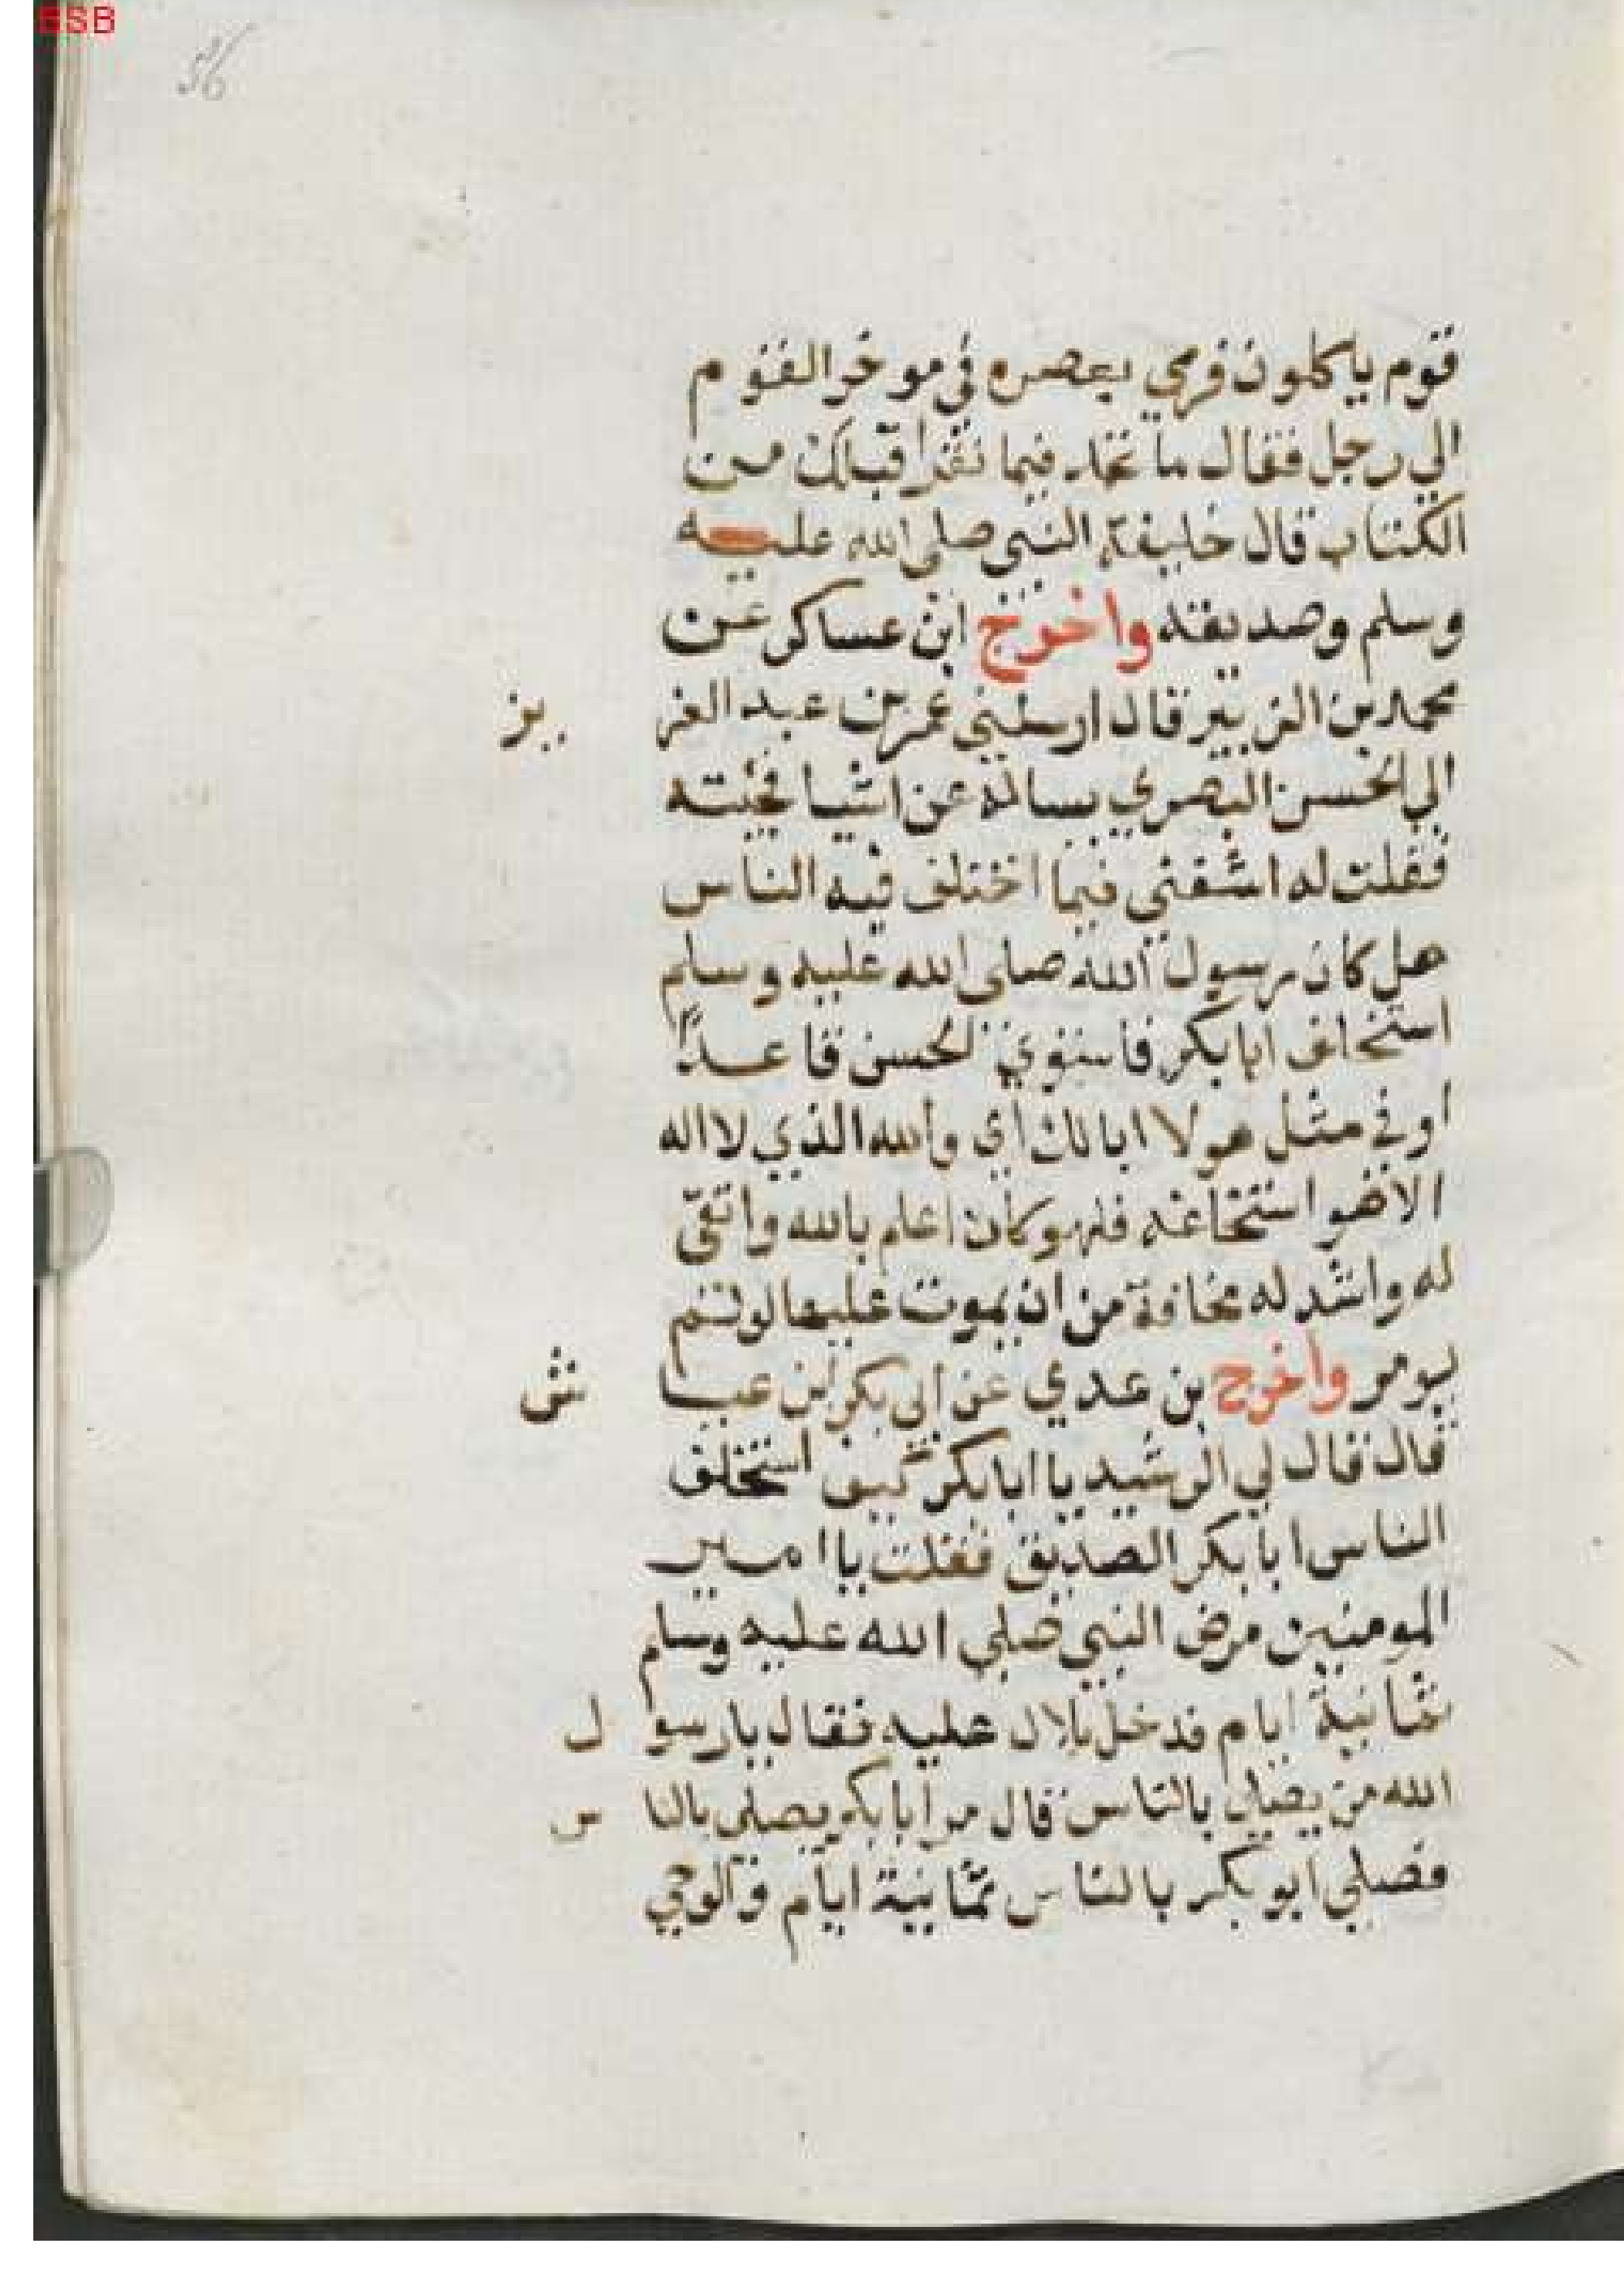 BSB
56
قوم ياكلون فرمي ببصره في موخر القوم
الي رجل فقال ما تجد فيما تقرا قبلك من
الكتاب قال خليفة النبي صلي الله عليه
وسلم وصديقه واخرج ابن عساكر عن
محمد بن الزبير قال ارسلني عمر بن عبد العز يز
الي الحسن البصري يساله عن اشيا فجيته
فقلت له اشفني فيما اختلف فيه الناس
هل كان رسول الله صلي الله عليه وسلم
استخلف ابا بكر فاستوي الحسن قاعدًا
او في مثل هولا ابا لك اي والله الذي لا اله
الا هو استخلفه فلهو كان اعلم بالله واتقي
له واشد له مخافة من ان يموت عليها لو لم
يومر واخرج بن عدي عن ابي بكر بن عيا ش
قال قال لي الرشيد يا ابا بكر كيف استخلف
الناس ابا بكر الصديق فقلت يا امير
المومنين مرض النبي صلي الله عليه وسلم
ثمانية ايام فدخل بلال عليه فقال يا رسو ل
الله من يصلي بالناس قال مر ابا بكر يصلي بالنا س
فصلي ابو بكر بالناس ثمانية ايام والوحي